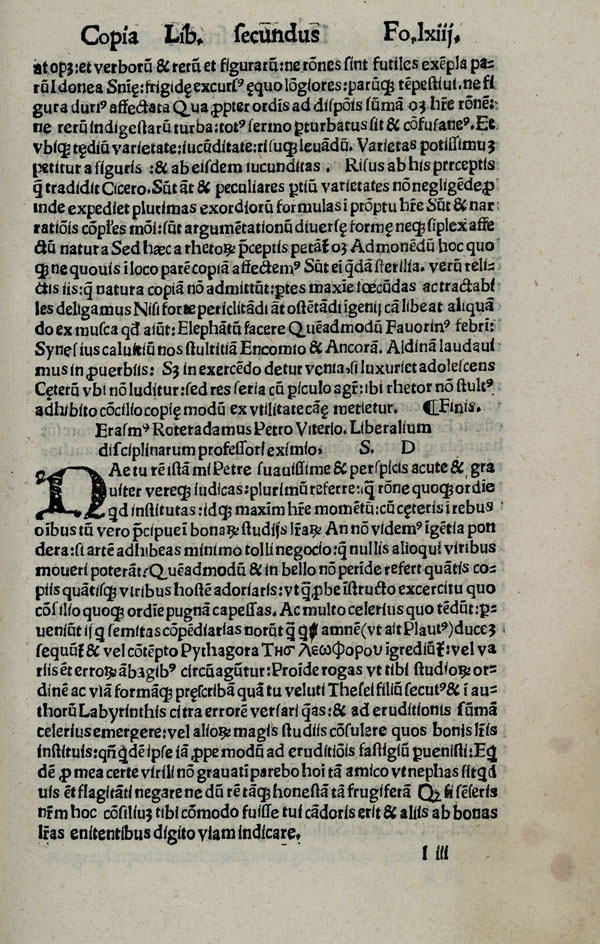 Copia Lib. secundus Fo. lxiij.
at op₃: et verborū & rerū et figurarū: ne rōnes sint futiles exēpla pa⸗
rū Idonea Snīę: frigidę excursꝰ ęquo lōgiores: parūꝙ tēpestiui. ne fi
gura durīꝰ affectata Qua ꝓpter ordīs ad dispōis sūmā oꝫ hr̄e rōnē:
ne rerū indigestarū turba: totꝰ sermo ꝑturbatus sit & cōfusaneꝰ. Et
vbiꝙ tędiū varietate: iucūditate: risuꝙ leuādū. Varietas potissimuꝫ
petitur a figuris : & ab eisdem iucunditas . Risus ab his prręceptis
q̄ tradidit Cicero. Sūt āt & peculiares ꝑtiū varietates nō negligēdę ꝓ
inde expediet plurimas exordiorū formulas ī prōptu hr̄e Sūt & nar
ratiōis cōpl̄es mōi: sūt argumētationū diuersę formę neꝙ siplex affe
ctū natura Sed hæc a rhetoꝝ p̄ceptis petāt̄ oꝫ Admonēdū hoc quo
ꝙ ne quouis ī loco parē copiā affectemꝰ Sūt ei q̄dā sterilia. verū reli⸗
ctis iis: q̄ natura copiā nō admittūt: ꝑtes maxie īoecūdas ac tractabi
les deligamus Nisi forte periclitādi āt ostētādi īgenij cā libeat aliquā
do ex musca qđ aiūt: Elephātū facere Quēadmodū Fauorinꝰ febrī:
Synesius caluitiū nos stultitiā Encomio & Ancorā. Aldinā laudaui
mus in ꝓuerbiis: Sꝫ in exercēdo detur venia, si luxuriet adolescens
Cęterū vbi nō luditur: sed res seria cū ꝑiculo agr̄: ibi rhetor nō stultꝰ
adhibito cōcilio copię modū ex vtilitate caūę metietur. ¶Finis.
Erasmꝰ Roteradamus Petro Viterio. Liberalium
disciplinarum professori eximio, S. D
QAe tu rē istā mi Petre suauissime & perspicis acute & gra
uiter vereꝙ iudicas: plurimū referre: q̄ rōne quoꝙ ordie
qd institutas: idꝙ maxim hr̄e momētū: cū cęteris ī rebus
oībus tū vero p̄cipue ī bonaꝝ studijs lr̄aꝝ An nō videmꝰ īgētia pon
dera: si artē adhibeas minimo tolli negocio: q̄ nullis alioqui viribus
moueri poterāt: Quēadmodū & in bello nō perīde refert quātis co⸗
piis quātisꝙ viribus hostē adoriaris: vt q̄ ꝓbe īstructo excercitu quo
cōsilio quoꝙ ordīe pugnā capessas. Ac multo celerius quo tēdūt: ꝑ⸗
ueniūt ij q̄ semitas cōpēdiarias norūt q̄ amnē (vt ait Plautꝰ) duceꝫ
sequūt̄ & vel cōtēpto Pythagora Τησ λεωφορου īgrediūt̄: vel va
riis ēt erroꝝ ābagibꝰ circūagūtur: Proīde rogas vt tibi studioꝝ or⸗
dinē ac viā formāꝙ pręscribā qua tu veluti Thesei filiū secutꝰ & ī au⸗
thorū Labyrinthis citra errorē versari q̄as: & ad eruditionis sūmā
celerius emergere: vel alioꝝ magis studiis cōsulere quos bonis lr̄is
instituis: qn̄ qdē ipse iā ꝓpe modū ad eruditiōis fastigiū ꝑuenisti: Eq̄
dē ꝓ mea certe virili nō grauati parebo hoi tā amico vt nephas sit qd
uis ēt flagitāti negare ne dū rē tāꝙ honestā tā frugiferā Qꝫ si sēseris
nr̄m hoc cōsiliuꝫ tibi cōmodo fuisse tui cādoris erit & aliis ab bonas
lr̄as enitentibus digito viam indicare.
I iii